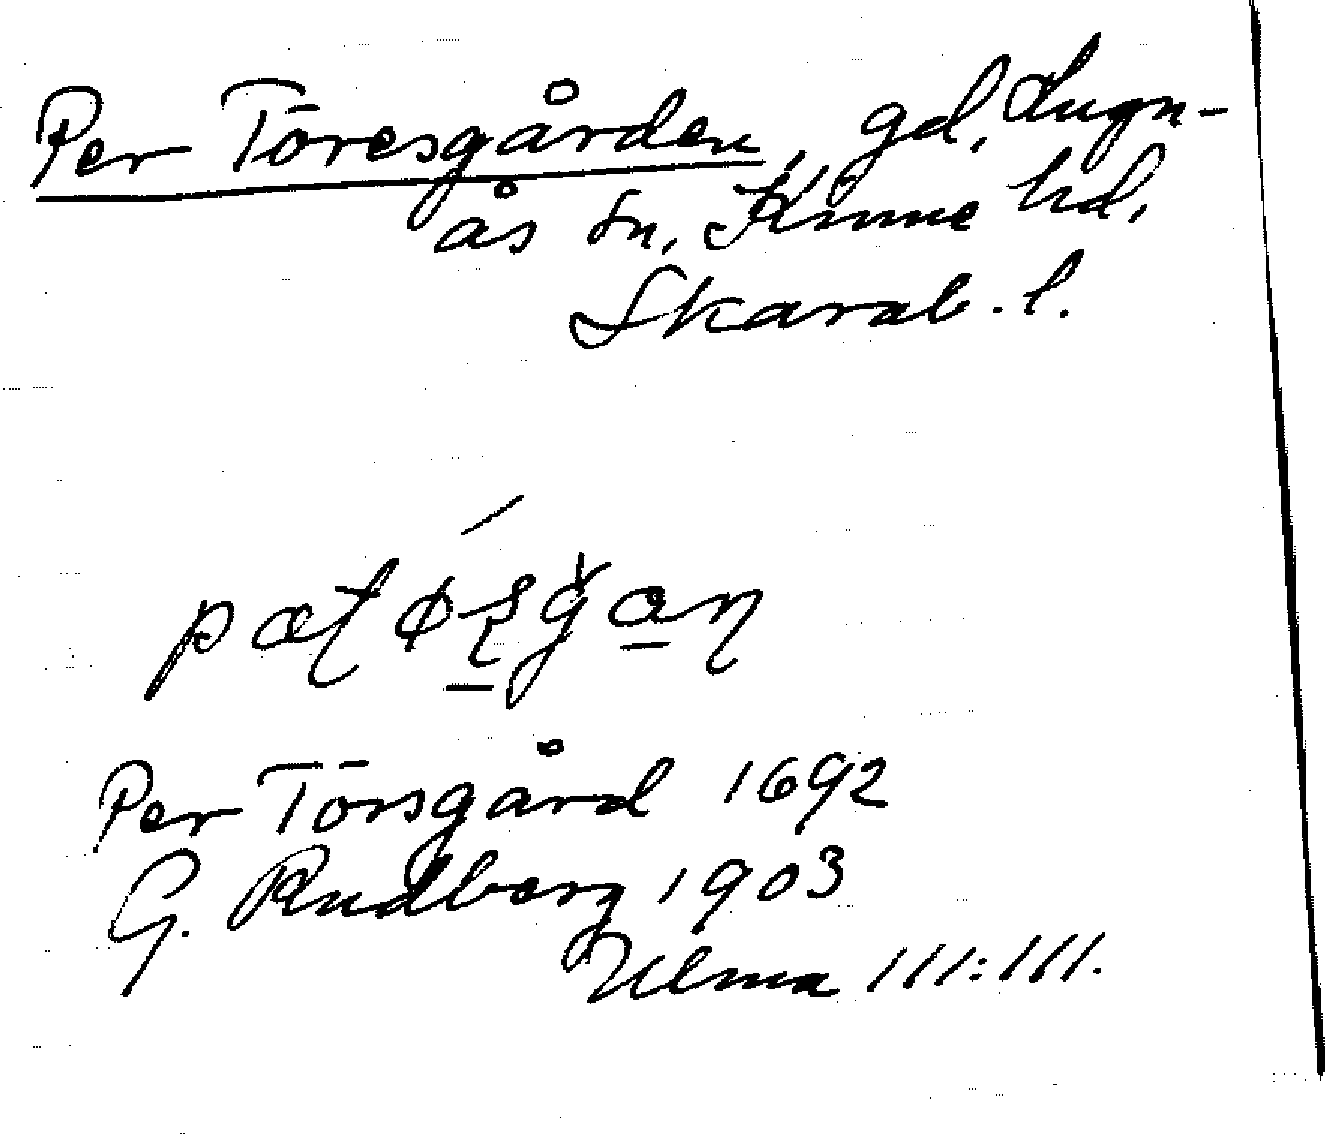 Per Töresgården, gd, Lugn-
ås sn, Kinne hd,
Skarab. l.
Per Törsgård 1692
G. Rudberg 1903
Ulma 111:111.